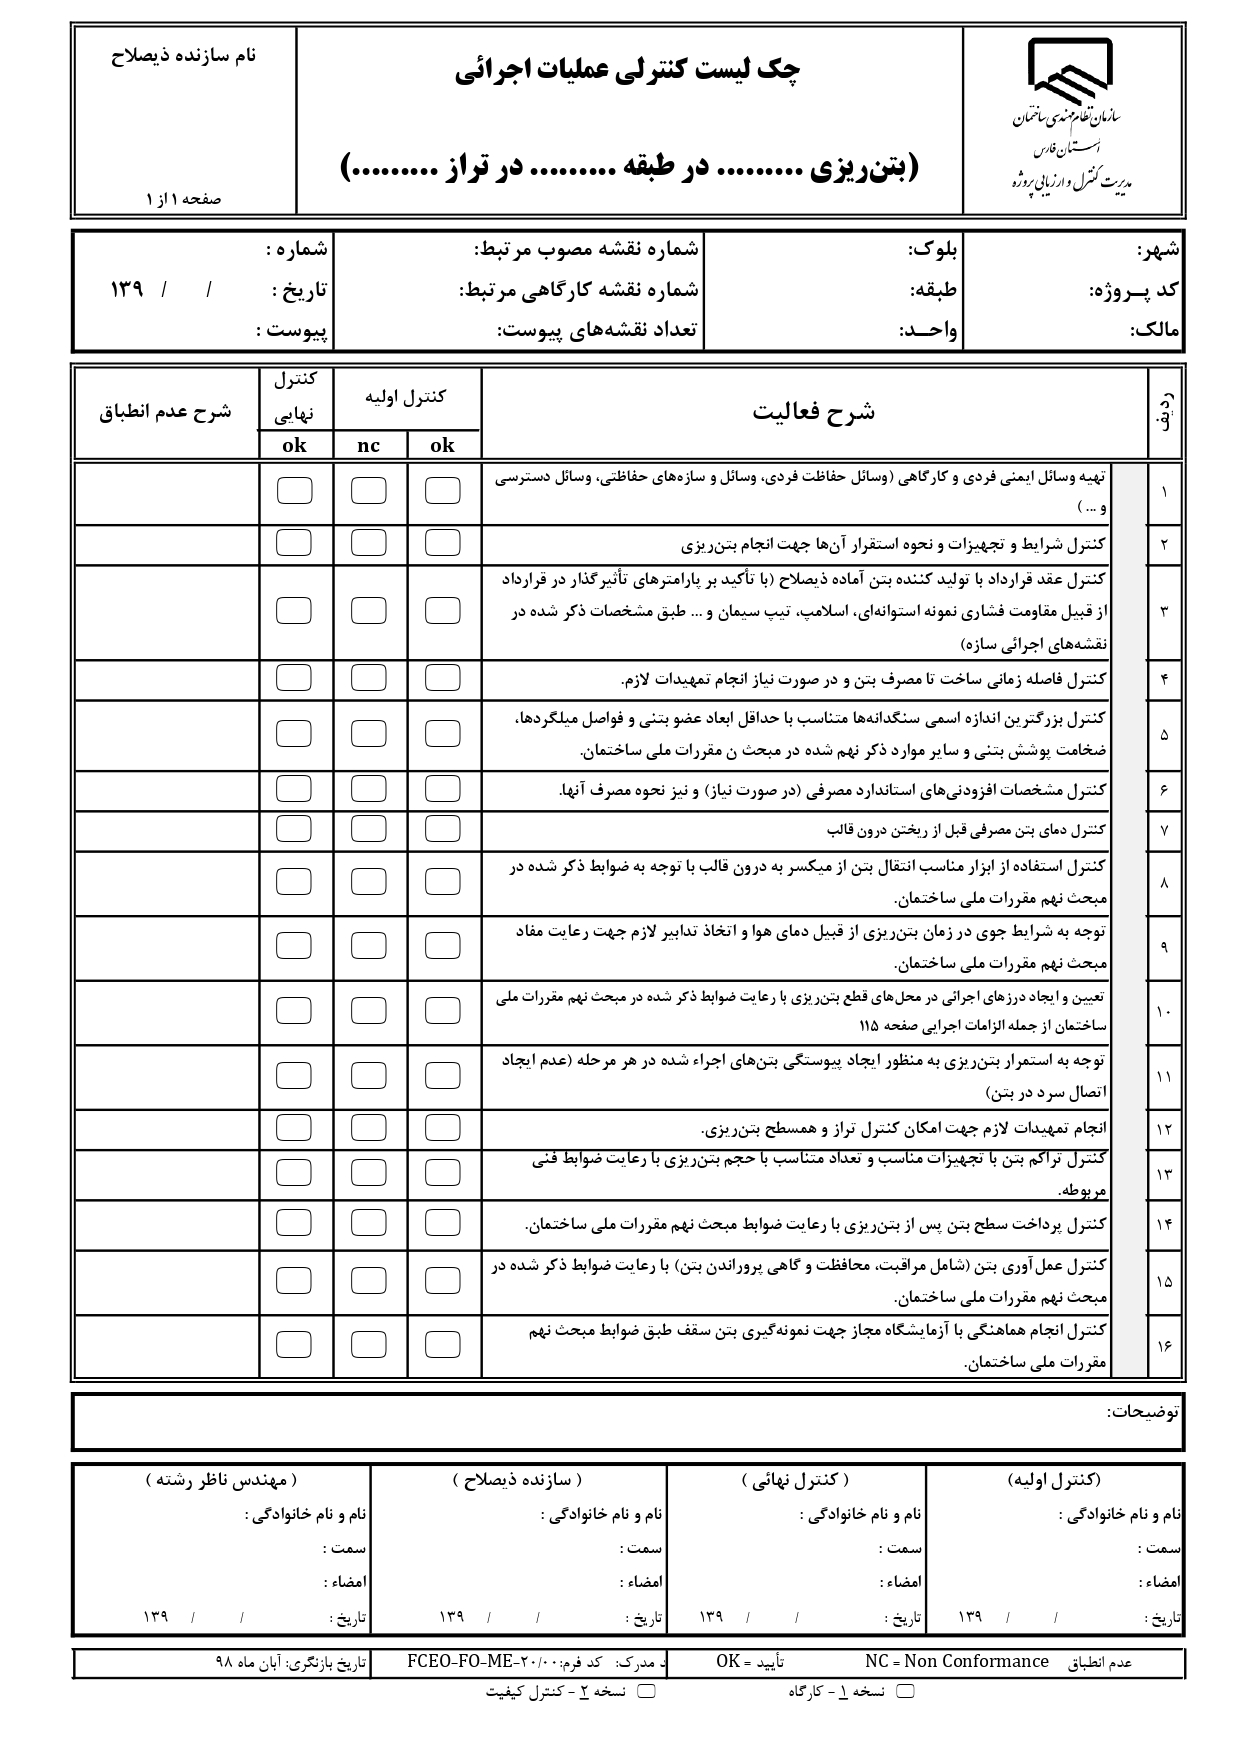 سازمان نظام مهندسی ساختمان
استان فارس
مدیریت کنترل و ارزیابی پروژه
چک لیست کنترلی عملیات اجرائی
(بتن‌ریزی ......... در طبقه ......... در تراز .........)
نام سازنده ذیصلاح
صفحه ۱ از ۱
شهر:
کد پــروژه:
مالک:
بلوک:
طبقه:
واحــد:
شماره نقشه مصوب مرتبط:
شماره نقشه کارگاهی مرتبط:
تعداد نقشه‌های پیوست:
شماره :
تاریخ : / / ۱۳۹
پیوست :
ردیف
شرح فعالیت
کنترل اولیه
ok
nc
کنترل
نهایی
ok
شرح عدم انطباق
۱
تهیه وسائل ایمنی فردی و کارگاهی (وسائل حفاظت فردی، وسائل و سازه‌های حفاظتی، وسائل دسترسی
و ... )
۲
کنترل شرایط و تجهیزات و نحوه استقرار آن‌ها جهت انجام بتن‌ریزی
۳
کنترل عقد قرارداد با تولید کننده بتن آماده ذیصلاح (با تأکید بر پارامترهای تأثیرگذار در قرارداد
از قبیل مقاومت فشاری نمونه استوانه‌ای، اسلامپ، تیپ سیمان و ... طبق مشخصات ذکر شده در
نقشه‌های اجرائی سازه)
۴
کنترل فاصله زمانی ساخت تا مصرف بتن و در صورت نیاز انجام تمهیدات لازم.
۵
کنترل بزرگترین اندازه اسمی سنگدانه‌ها متناسب با حداقل ابعاد عضو بتنی و فواصل میلگردها،
ضخامت پوشش بتنی و سایر موارد ذکر نهم شده در مبحث ن مقررات ملی ساختمان.
۶
کنترل مشخصات افزودنی‌های استاندارد مصرفی (در صورت نیاز) و نیز نحوه مصرف آنها.
۷
کنترل دمای بتن مصرفی قبل از ریختن درون قالب
۸
کنترل استفاده از ابزار مناسب انتقال بتن از میکسر به درون قالب با توجه به ضوابط ذکر شده در
مبحث نهم مقررات ملی ساختمان.
۹
توجه به شرایط جوی در زمان بتن‌ریزی از قبیل دمای هوا و اتخاذ تدابیر لازم جهت رعایت مفاد
مبحث نهم مقررات ملی ساختمان.
۱۰
تعیین و ایجاد درزهای اجرائی در محل‌های قطع بتن‌ریزی با رعایت ضوابط ذکر شده در مبحث نهم مقررات ملی
ساختمان از جمله الزامات اجرایی صفحه ۱۱۵
۱۱
توجه به استمرار بتن‌ریزی به منظور ایجاد پیوستگی بتن‌های اجراء شده در هر مرحله (عدم ایجاد
اتصال سرد در بتن)
۱۲
انجام تمهیدات لازم جهت امکان کنترل تراز و همسطح بتن‌ریزی.
۱۳
کنترل تراکم بتن با تجهیزات مناسب و تعداد متناسب با حجم بتن‌ریزی با رعایت ضوابط فنی
مربوطه.
۱۴
کنترل پرداخت سطح بتن پس از بتن‌ریزی با رعایت ضوابط مبحث نهم مقررات ملی ساختمان.
۱۵
کنترل عمل‌آوری بتن (شامل مراقبت، محافظت و گاهی پروراندن بتن) با رعایت ضوابط ذکر شده در
مبحث نهم مقررات ملی ساختمان.
۱۶
کنترل انجام هماهنگی با آزمایشگاه مجاز جهت نمونه‌گیری بتن سقف طبق ضوابط مبحث نهم
مقررات ملی ساختمان.
توضیحات:
(کنترل اولیه)
نام و نام خانوادگی :
سمت :
امضاء :
تاریخ : / / ۱۳۹
( کنترل نهائی )
نام و نام خانوادگی :
سمت :
امضاء :
تاریخ : / / ۱۳۹
( سازنده ذیصلاح )
نام و نام خانوادگی :
سمت :
امضاء :
تاریخ : / / ۱۳۹
( مهندس ناظر رشته )
نام و نام خانوادگی :
سمت :
امضاء :
تاریخ : / / ۱۳۹
عدم انطباق NC = Non Conformance تأیید = OK
د مدرک: کد فرم: FCEO-FO-ME-۲۰/۰۰
تاریخ بازنگری: آبان ماه ۹۸
نسخه ۱ - کارگاه
نسخه ۲ - کنترل کیفیت